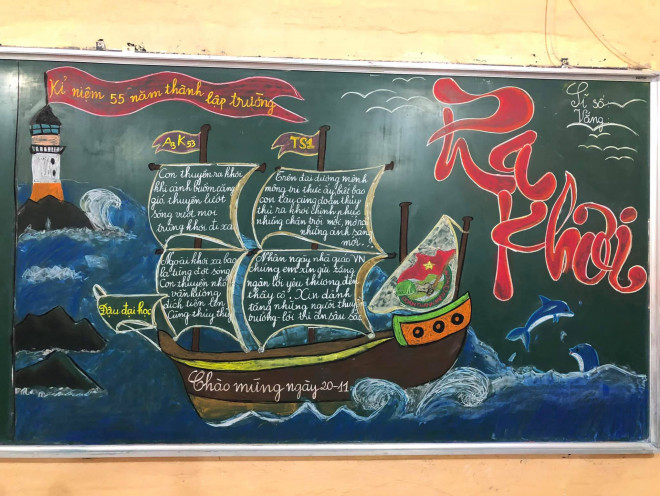 Kỉ niệm 55 năm thành lập trường
Ra
Khơi
Sĩ số
Vắng
A3 K53
TS1
Con thuyền ra khơi
khi cánh buồm căng
gió, thuyền lướt
sóng vượt mọi
trùng khơi đi xa
Trên đại dương mênh
mông tri thức ấy, biết bao
con tàu cùng đoàn thủy
thủ ra khơi chinh phục
những chân trời mới, mở ra
những ánh sáng
mới...
Ngoài khơi xa bao
là từng đợt sóng
Con thuyền nhỏ
vẫn hướng
đích tiến lên
Cùng thủy thủ
Nhân ngày nhà giáo VN
chúng em xin gửi tặng
ngàn lời yêu thương đến
thầy cô. Xin dành
tặng những người thuyền
trưởng lời tri ân sâu sắc
Đậu đại học
Chào mừng ngày 20-11